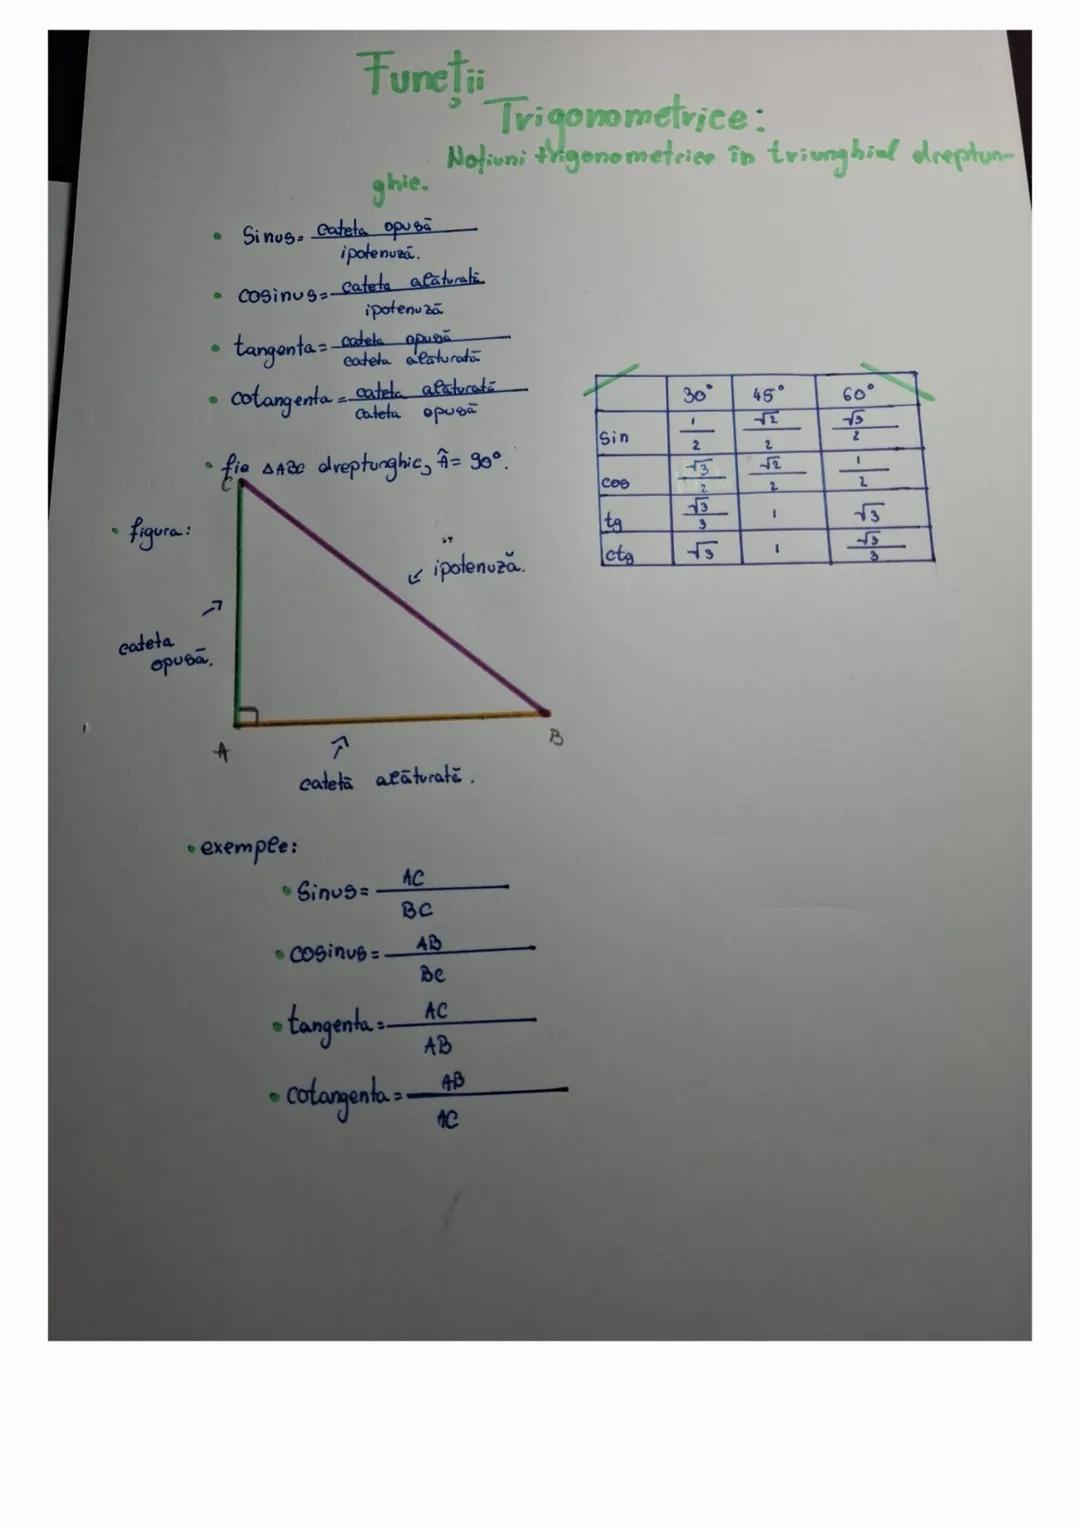 Funcții
Trigonometrice:
Noțiuni trigonometrice în triunghiul dreptun-
ghic.
• Sinus= cateta opusă
ipotenuză.
• cosinus= cateta alăturată
ipotenuză
• tangenta= cateta opusă
cateta alăturată
• cotangenta= cateta alăturată
cateta opusă
30° 45° 60°
sin 1/2 √2/2 √3/2
cos √3/2 √2/2 1/2
tg √3/3 1 √3
ctg √3 1 √3/3
• fie ΔABC dreptunghic, Â= 90°.
C
• figura:
ipotenuză.
cateta
opusă.
A
B
catetă alăturată.
• exemple:
• Sinus= AC
BC
• cosinus= AB
BC
• tangenta= AC
AB
• cotangenta= AB
AC